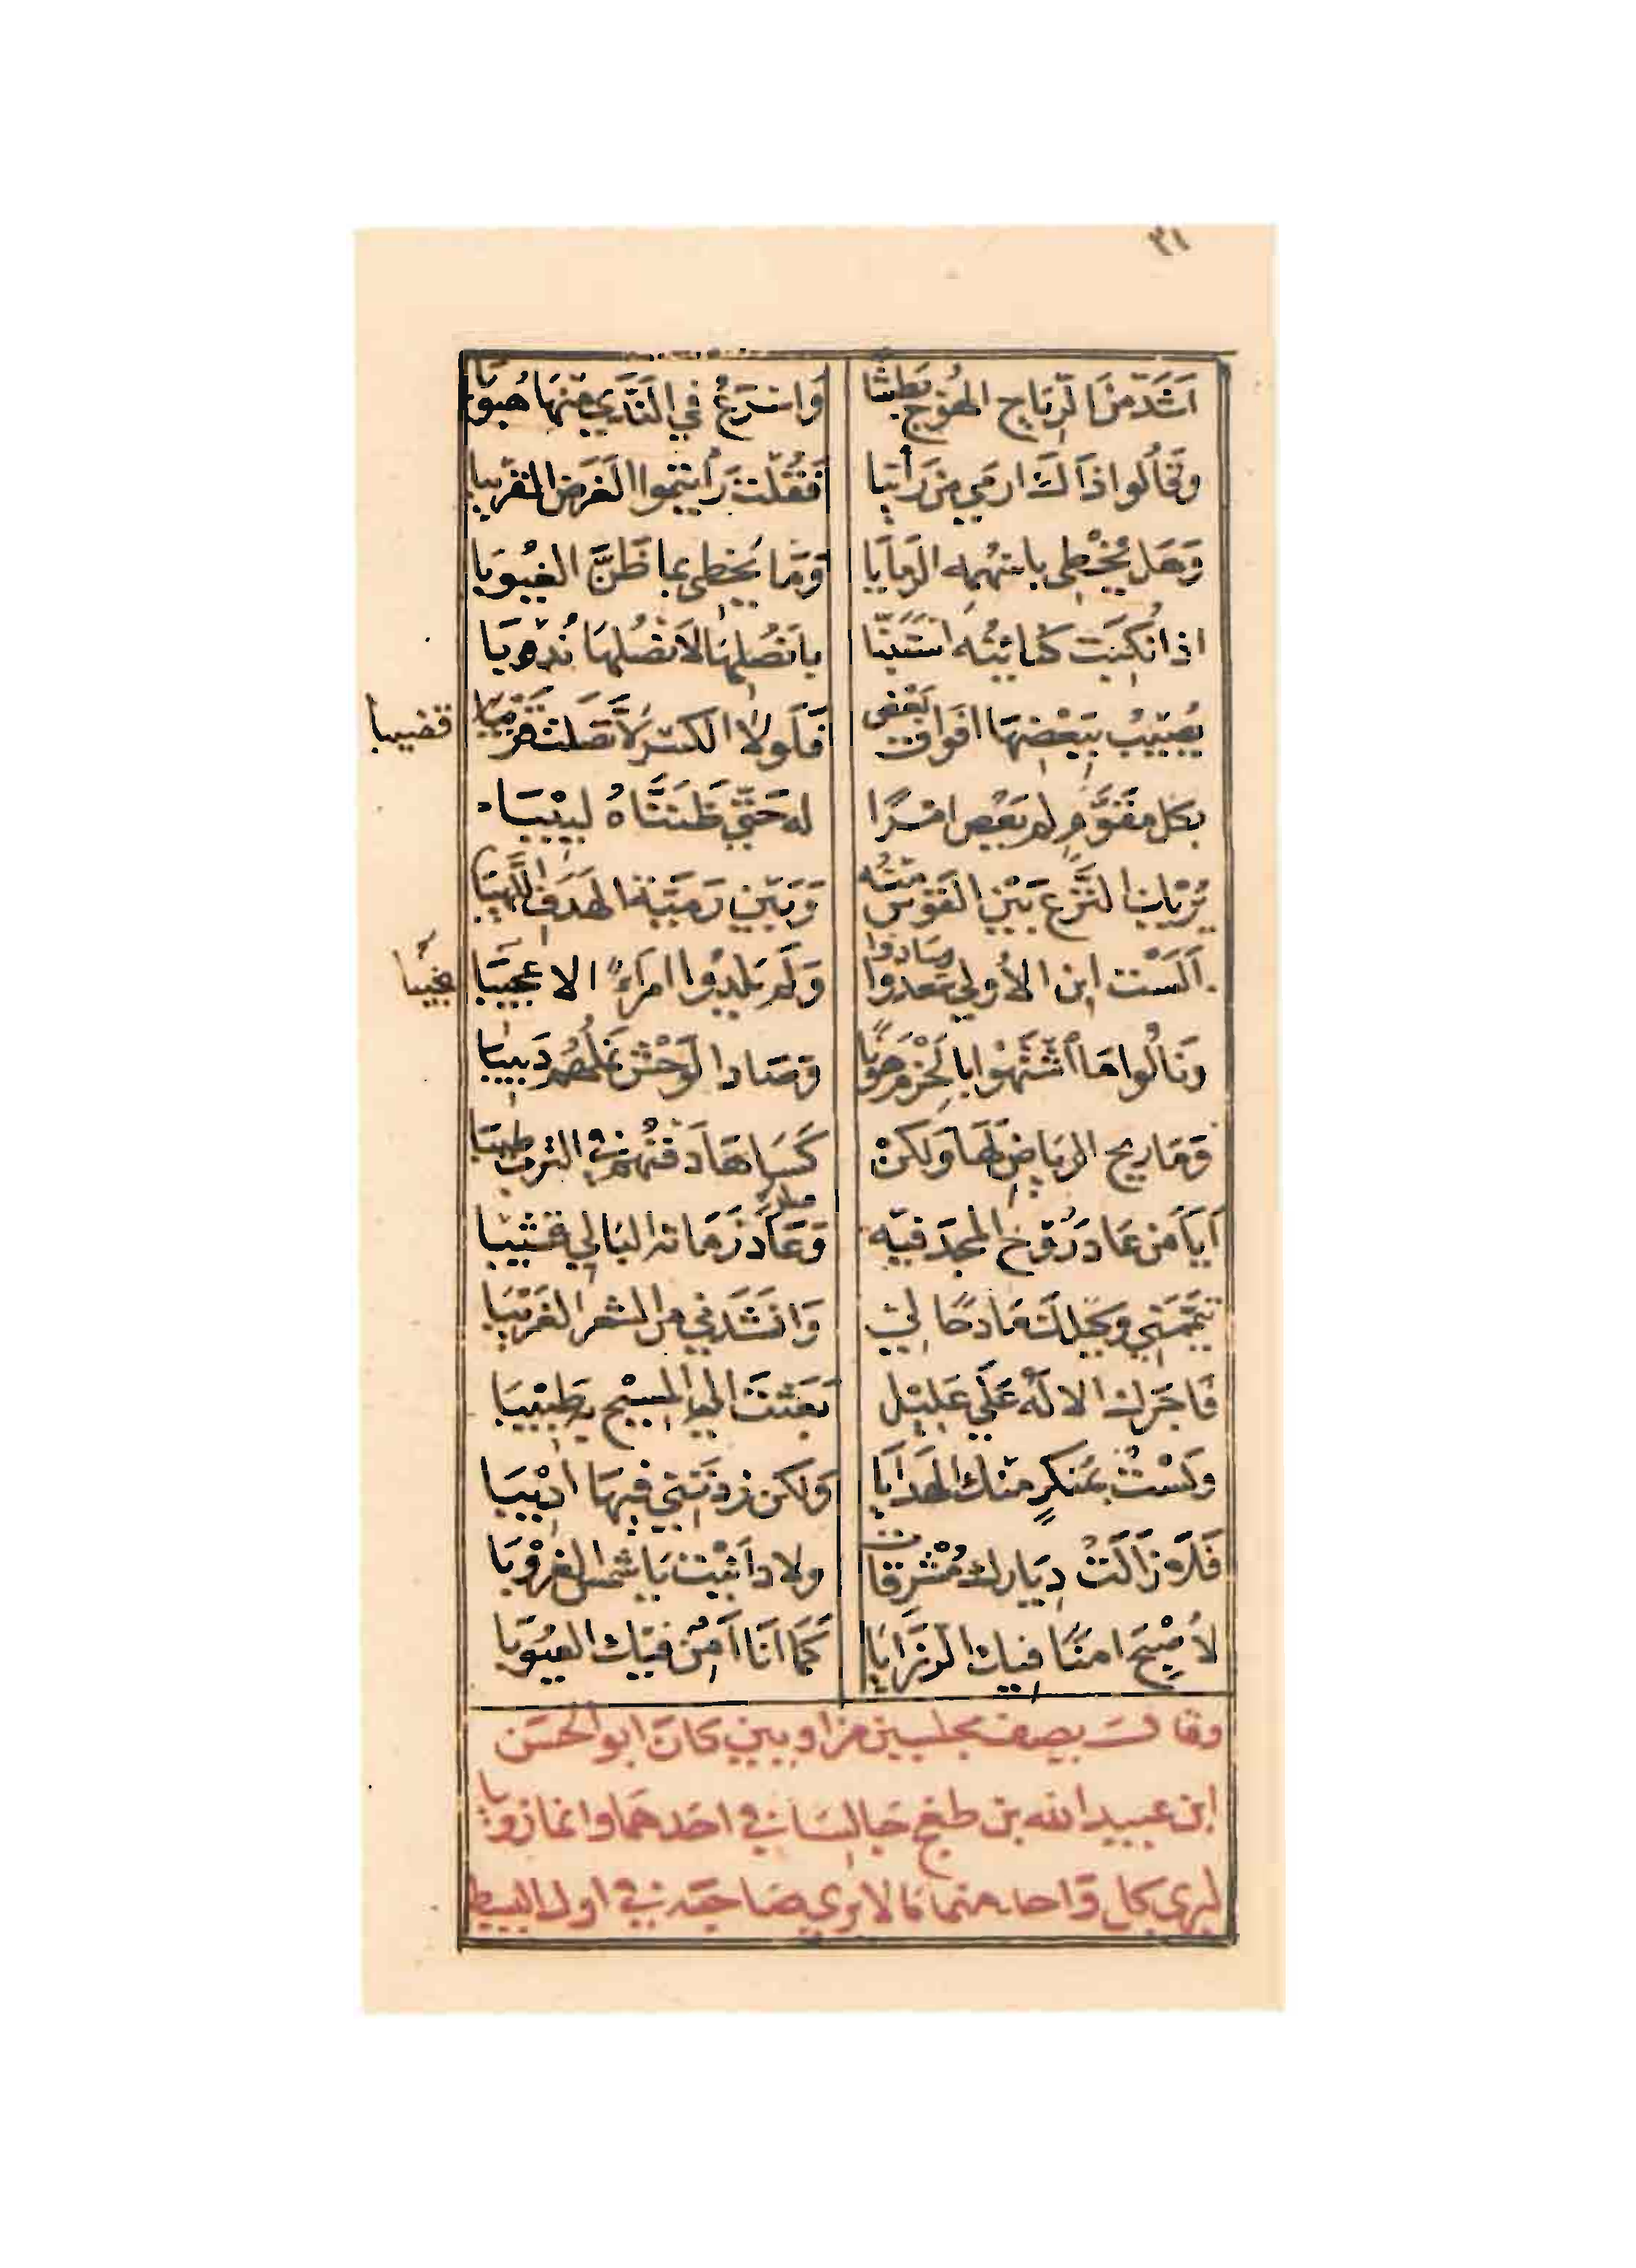 ٣١
اَشَدّ مِنَ الرِّيَاحِ الهُوْجِ بَطشًا وَاسْرَعُ في النَّدَي مِنهَا هُبوُبَا
وَقَالُوا ذَاكَ ارمَي مَن رَأينَا فَقُلْتُ رَأيْتُموا الغَرَضَ القَريبَا
وَهَل يُخْطِى باسْهُمِه الرمَايَا وَمَا يُخطِى بما ظَنَّ الغيُوبَا
اذا نُكِبَت كنايتُه اسْتَبَنَّا بانصُلِهَا لانصُلِهَا نُدُوبَا
يُصِيبُ بِبَعْضِهَا افوَاقَ بَعْضٍ فَلَولا الكَسْرُ لاتّصَلت قضيبا
قضيبا
بكل مقَوَّمٍ لم يَعْصِ امْرًا له حَتّي ظَنَنَّاهُ لبيْبَا
يُرِيك النَّزعُ بَيْنَ القَوْسِ مِنْهُ وَبَيْنَ رَمِيّه الهَدَفَ اللَّهيبَا
اَلَسْتَ ابن الأولي سَعدوا وسَادوا وَلَم يَلِدُوا امرَءً الا نجيبَا
نجيبًا
وَنَالُوا مَا اشْتَهَوْا بالحَزْمِ هَوْنًا وَصَادَ الوَحْشَ نَملُهُمُ دَبيبَا
وَمَا ريح الريَاضِ لَهَا وَلَكِنْ كَسَاهَا دَفنُهُمْ في التربِ طيبَا
اَيَا مَن عَادَ رُوْحُ المجْدِ فيه وَعَادَ زَمَانه البَالي قَشيْبَا
تَيَمَّمَني وَكيلك مَادحًا لي وَانْشَدَني من الشعر الغَريْبَا
فَاجَرَك الالَهُ عَلَي عَليْل بَعَثْتَ الي المسِيْحِ به طَبيْبَا
وَلَسْتُ بمُنكِرٍ منك الهَدَايَا وَلكن زِدْتَني فيهَا اديْبَا
فَلاَ زَالَتْ دِيَارك مُشْرِقات ولا دانَيْتَ يَا شمسُ الغرُوْبَا
لاُصْبِحَ امنًا فيك الرزَايَا كَمَا انَا امِنٌ فيك العيُوبَا
وقال يصف مجلسين مزاويين كان ابو الحسَن
ابن عبيد الله بن طغج جَالسَا في احَدهمَا وانما زويا
ليري كل وَاحد منهما مالا يري صَاحبَه في اول البسيط